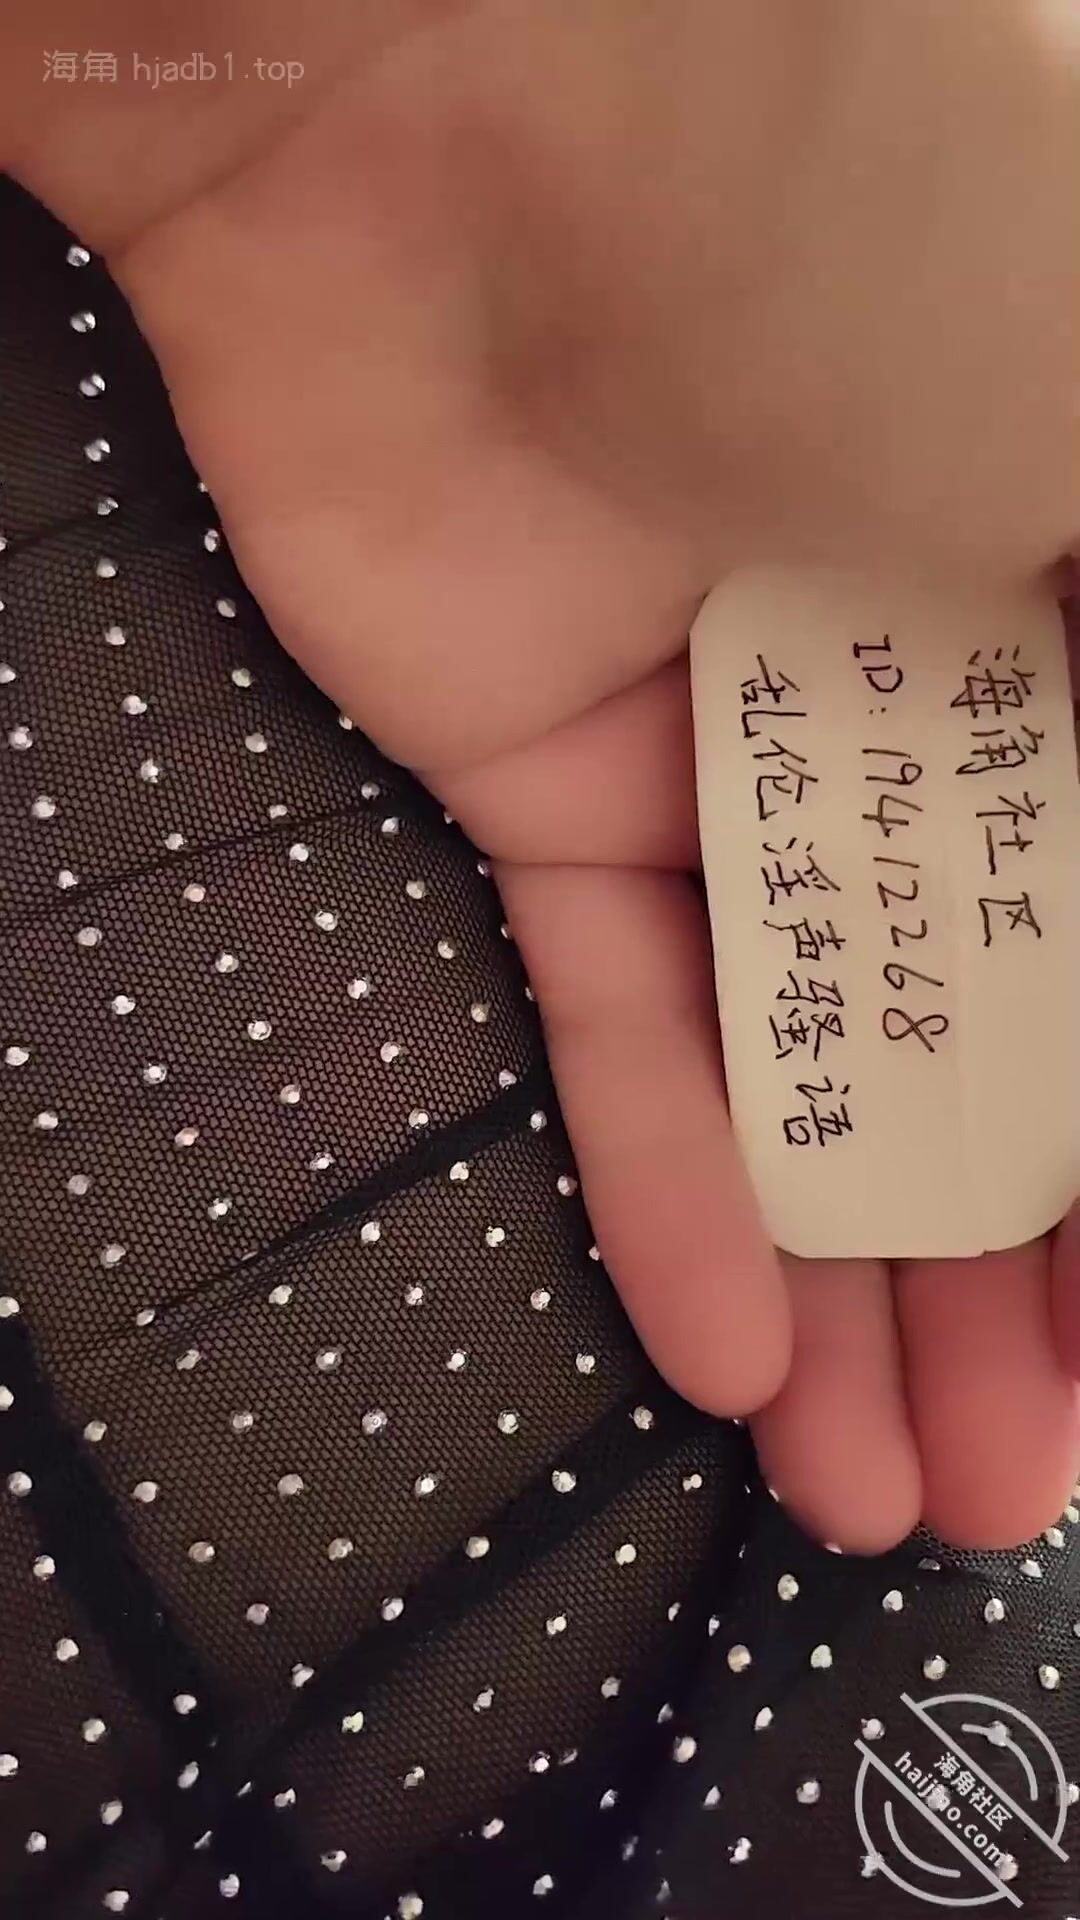 海角 hjadb1.top
海角社区
ID: 19412268
乱伦淫声骚语
海角社区
haijiao.com